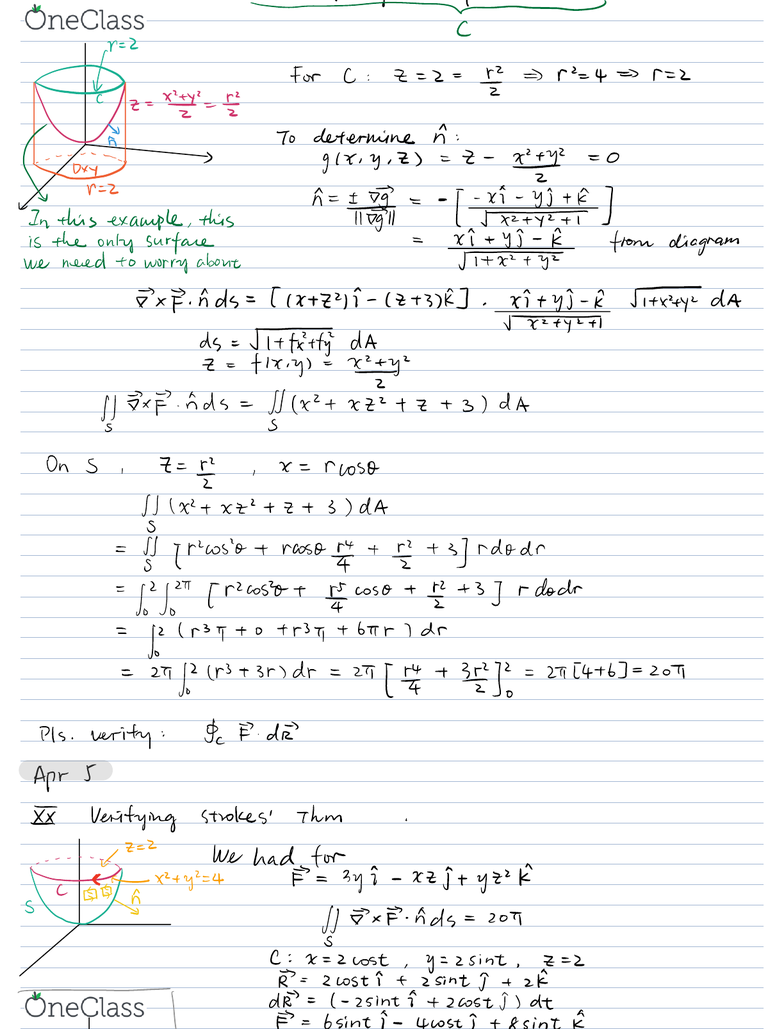 OneClass
C
r=2
C
z = x²+y²/2 = r²/2
n̂
Dxy
r=2
For C : z = 2 = r²/2 ⇒ r²=4 ⇒ r=2
To determine n̂ :
g(x,y,z) = z - x²+y²/2 = 0
n̂ = ± ∇g/||∇g|| = - [ -xî - yĵ + k̂ / √x²+y²+1 ]
= xî + yĵ - k̂ / √1+x²+y² from diagram
In this example, this
is the only surface
we need to worry about
∇×F · n̂ ds = [(x+z²)î - (z+3)k̂] · xî + yĵ - k̂ / √x²+y²+1 √1+x²+y² dA
ds = √1+fx²+fy² dA
z = f(x,y) = x²+y²/2
∬S ∇×F · n̂ ds = ∬S (x² + xz² + z + 3) dA
On S , z = r²/2 , x = rcosθ
∬S (x² + xz² + z + 3) dA
= ∬S [r²cos²θ + rcosθ r⁴/4 + r²/2 + 3] r dθ dr
= ∫₀² ∫₀^2π [r²cos²θ + r⁵/4 cosθ + r²/2 + 3] r dθdr
= ∫₀² (r³π + 0 + r³π + 6πr) dr
= 2π ∫₀² (r³ + 3r) dr = 2π [r⁴/4 + 3r²/2]₀² = 2π[4+6] = 20π
Pls. verify: ∮C F · dR
Apr 5
XX Verifying strokes' Thm .
z=2
x²+y²=4
C
S
n̂
We had for
F = 3y î - xz ĵ + yz² k̂
∬S ∇×F · n̂ ds = 20π
C : x = 2cost , y = 2sint , z = 2
R = 2cost î + 2sint ĵ + 2k̂
dR = (-2sint î + 2cost ĵ) dt
F = 6sint î - 4cost î + 8sint k̂
OneClass